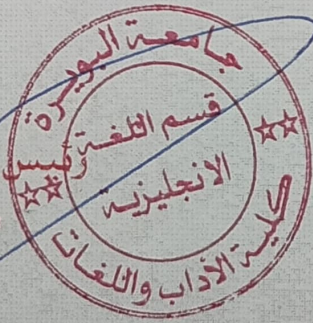 جامعة البويرة
قسم اللغة
الانجليزية
كلية الآداب واللغات